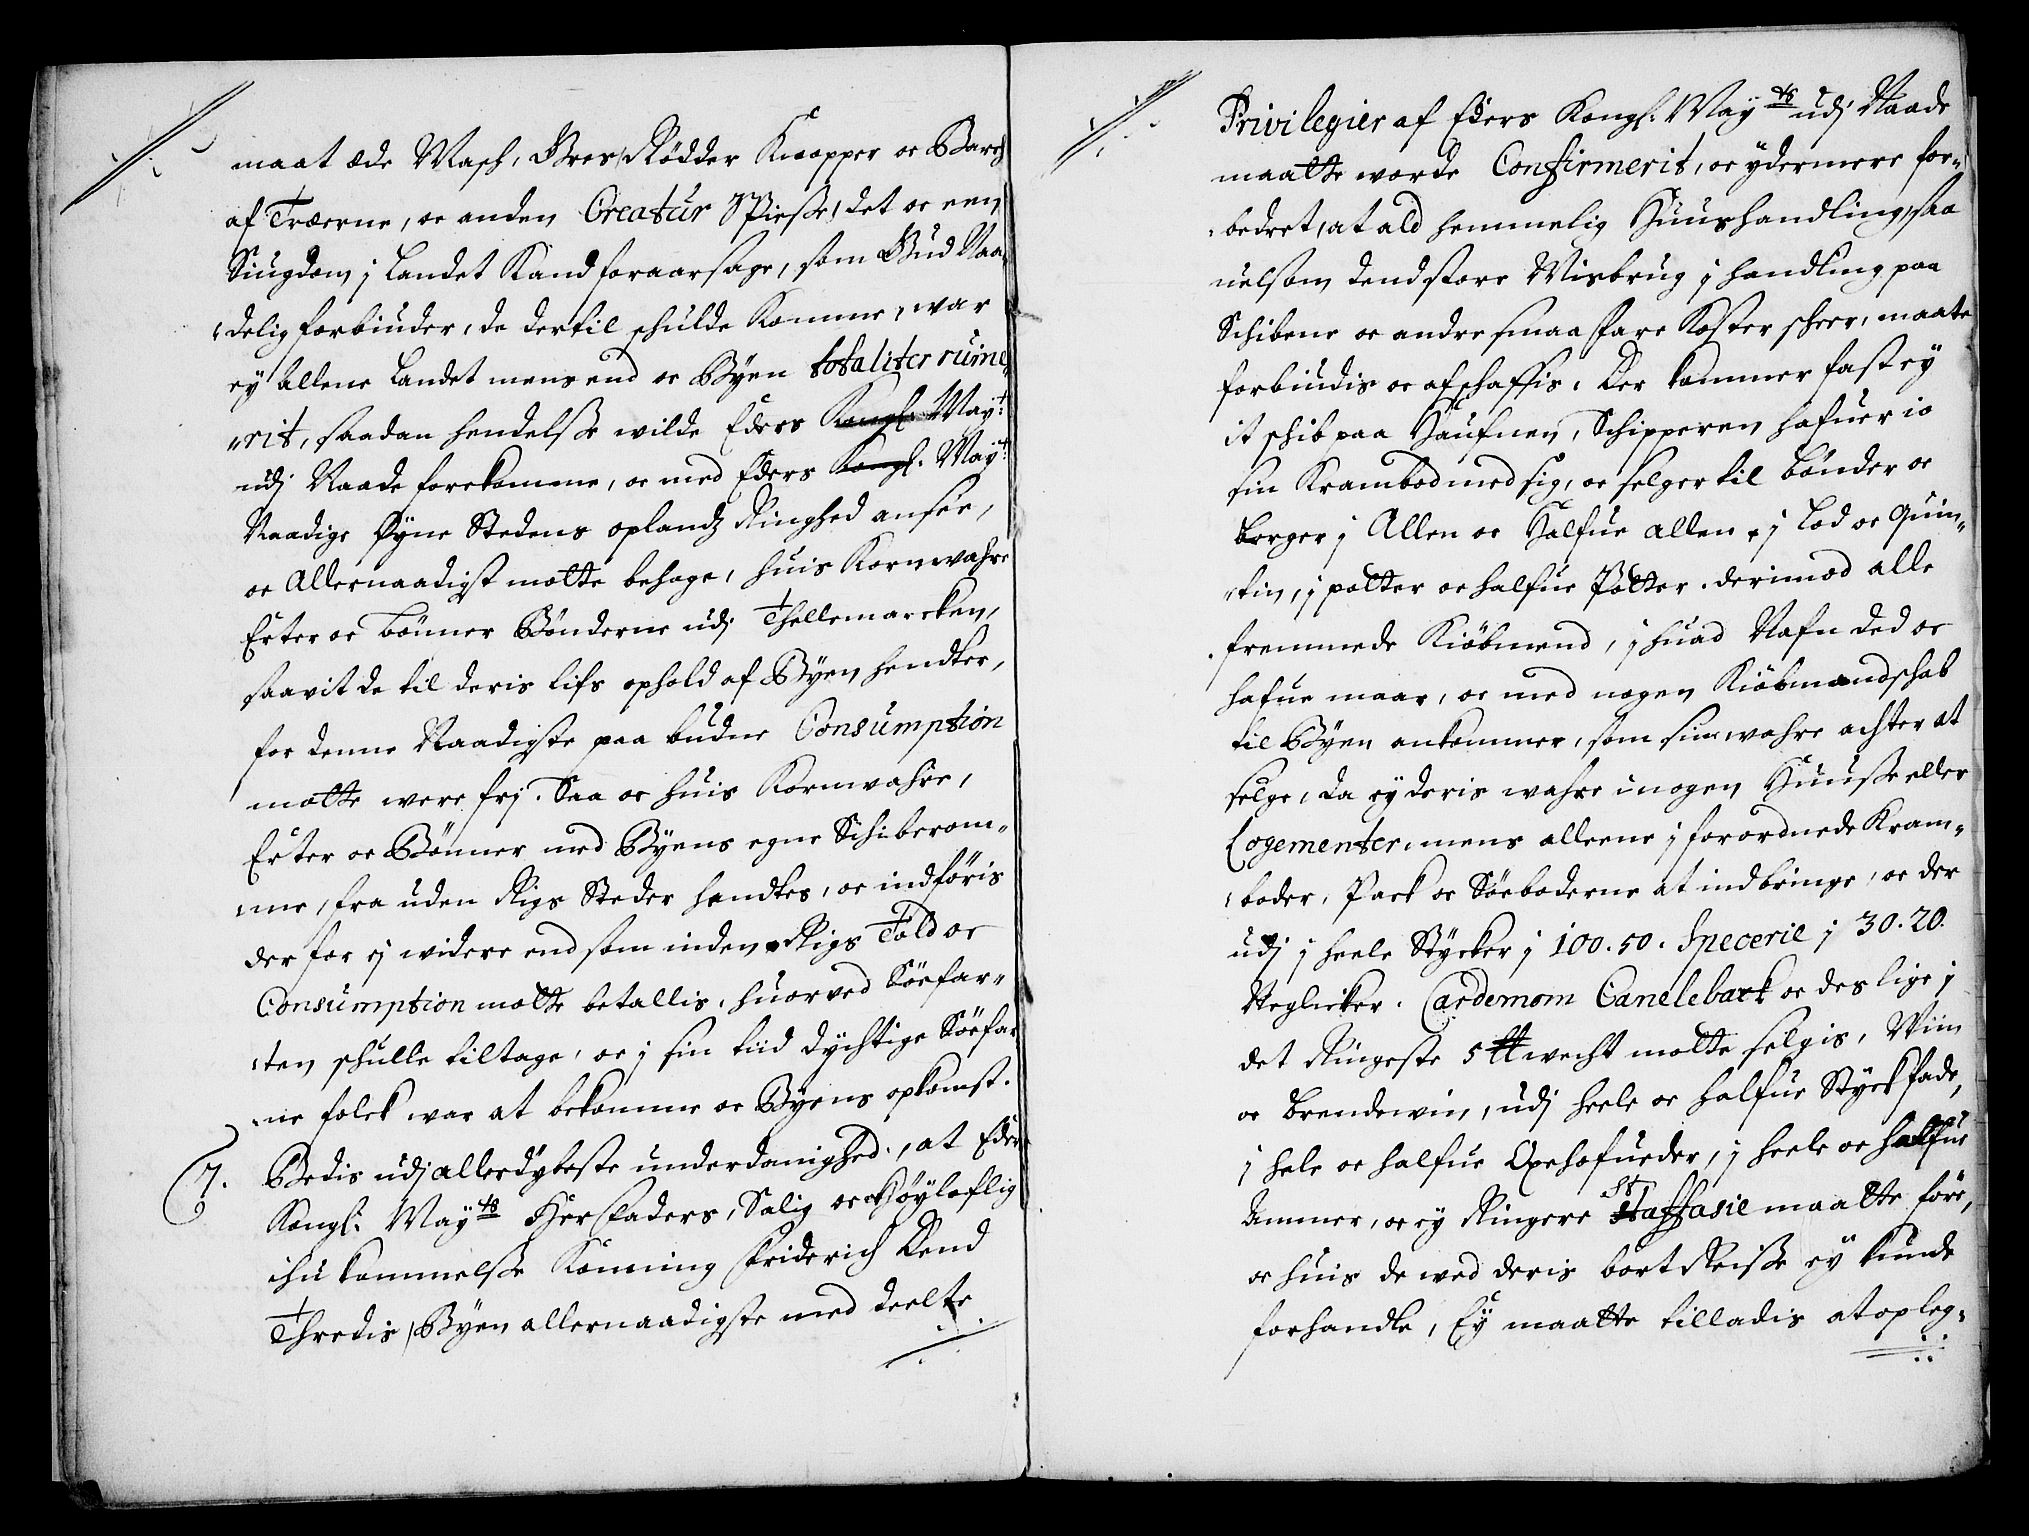 maat æde Mask, Gres, Rödder Knopper oc Barch
af Træerne, oc anden Creatur Spiesse, det oc een
Siugdom j Landet Kand foraarsage, som Gud Naa-
delig forbiuder, de dertil schulde Komme, war
ey allene Landet mens end oc Byen totaliter ruine-
rit, saadan hendelsse wilde Eders Kongl. May.t
udj Naade forekomme, oc med Eders Kongl. May.t
Naadige Øyne Stedens oplandz Ringhed ansee,
oc Allernaadigst motte behage, huis Kornwahre
Erter oc bönner Bönderne udj Thellemarcken,
saavit de til deris lifs ophold af Byen hendter,
for denne Naadigste paa budne Consumption
motte were frj. Saa oc huis Kornwahre,
Erter oc Bönner med Byens egne Schiberom-
me, fra uden Rigs Steder handtes, oc indföris
der for ej widere end som inden Rigs Told oc
Consumption motte betallis, huorved Söefar-
ten schulle tiltage, oc j sin tiid dychtige Söefar-
ne folck war at bekomme oc Byens opkomst.
7. Bedis udj allerdybeste underdanighed, at Eders
Kongl. May.ts Her Faders, Salig oc Höyloflig
ihukommelsse Konning Friderich Dend
Thredis, Byen allernaadigste med deelte
Privilegier af Eders Kongl. May.ts udj Naade
maatte worde Confirmerit, oc ydermere for-
bedret, at ald hemmelig Huushandling, saa
uelsom dend store Misbrug j handling paa
Schibene oc andre smaa fare Koster scheer, maate
forbiudis oc afschaffis. Der kommer fast ey
it schib paa Haufnen, Schipperen hafuer io
sin Krambod med sig, oc selger til bönder oc
borger j Allen oc Halfue allen, j Lod oc Quin-
tin, j potter oc halfue Potter. derimod alle
fremmede Kiöbmend, j huad Nafn ded oc
hafue maae, oc med nogen Kiöbmandschab
til Byen ankommer, som sine wahre achter at
selge, da ey deris wahre i nogen Huusse eller
Logementer, mens alleene j forordnede Kram-
boder, Pack oc Söeboderne at indbringe, oc der
udj j heele Stycker j 100. 50. Specerie j 30. 20.
Neglicker. Cardemom Canelebark oc deslige j
det Ringeste 5 ℔ wecht motte selgis, Wiin
oc brendewin, udj heele oc halfue Styckfade,
j hele oc halfue Oxehofueder, j heele oc halfue
Ammer, oc ey Ringere Staffasie maatte före,
oc huis de wed deris bort Reisse ey kunde
forhandle, Ey maatte tilladis at opleg-